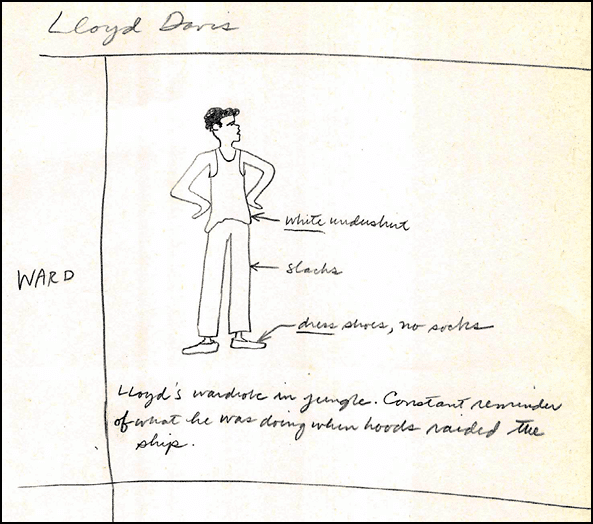 Lloyd Davis
white undershirt
slacks
WARD
dress shoes, no socks
Lloyd's wardrobe in jungle. Constant reminder
of what he was doing when hoods raided the
ship.